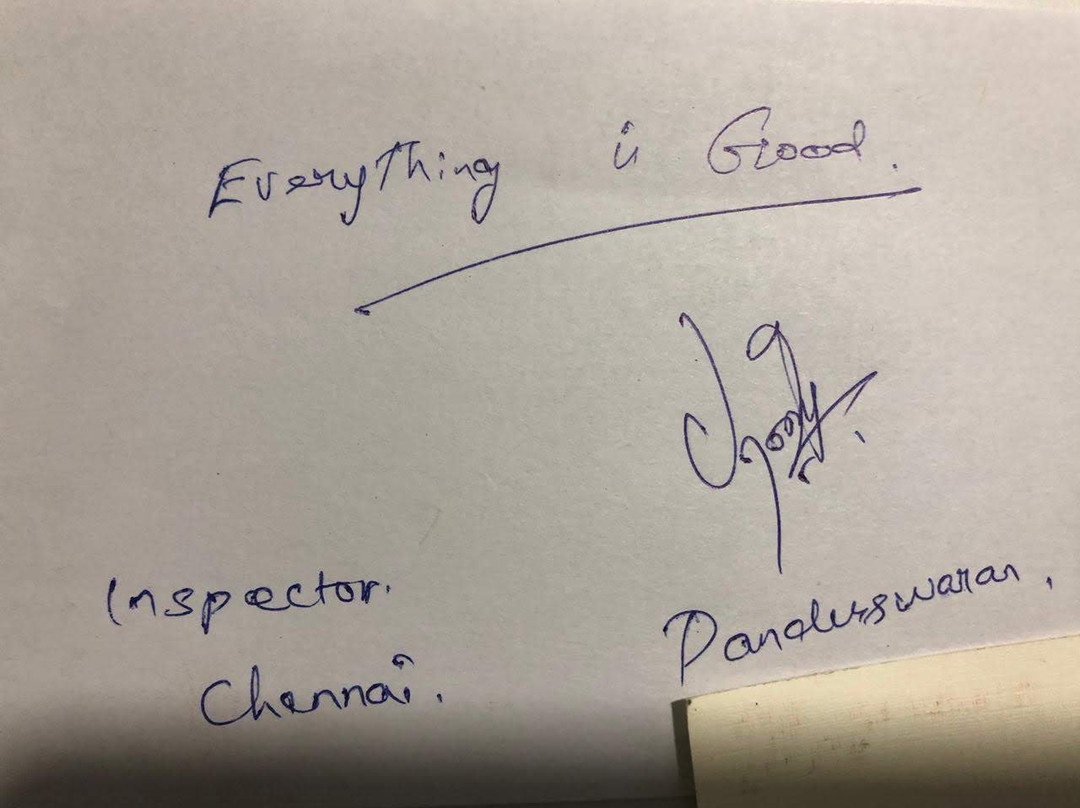 Everything is Good.
Inspector.
Chennai.
Panduswaran,